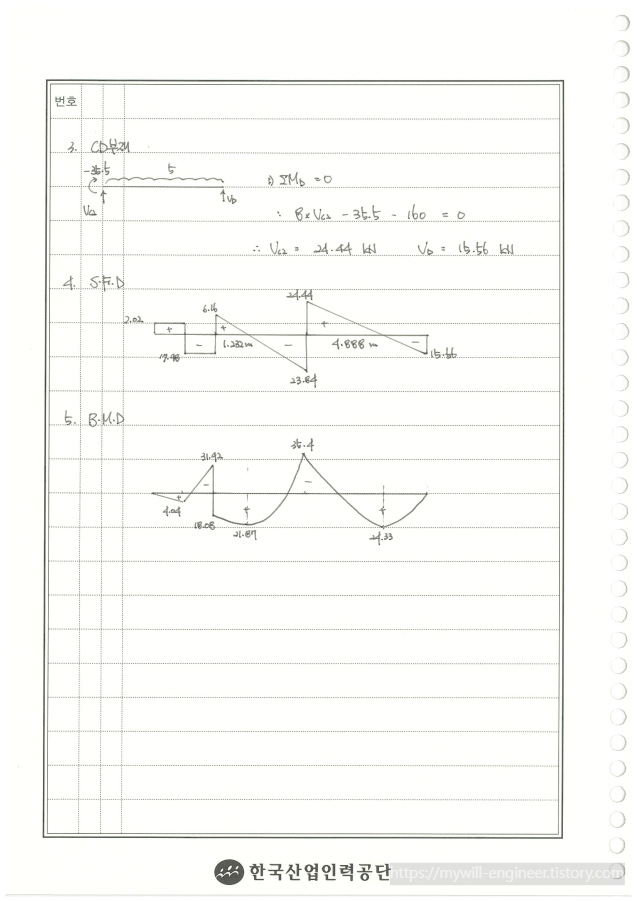 번호
3. CD부재
-35.5 5
1) ΣM_D = 0
V_C2 V_D
∴ 8×V_C2 - 35.5 - 160 = 0
∴ V_C2 = 24.44 kN V_D = 15.56 kN
4. S.F.D
24.44
6.16
2.02
+ + +
- 1.232m - 4.888 m -
17.98 15.56
23.84
5. B.M.D
35.4
31.92
- -
+ + +
4.04
18.08
21.87 24.33
한국산업인력공단
https://mywill-engineer.tistory.com